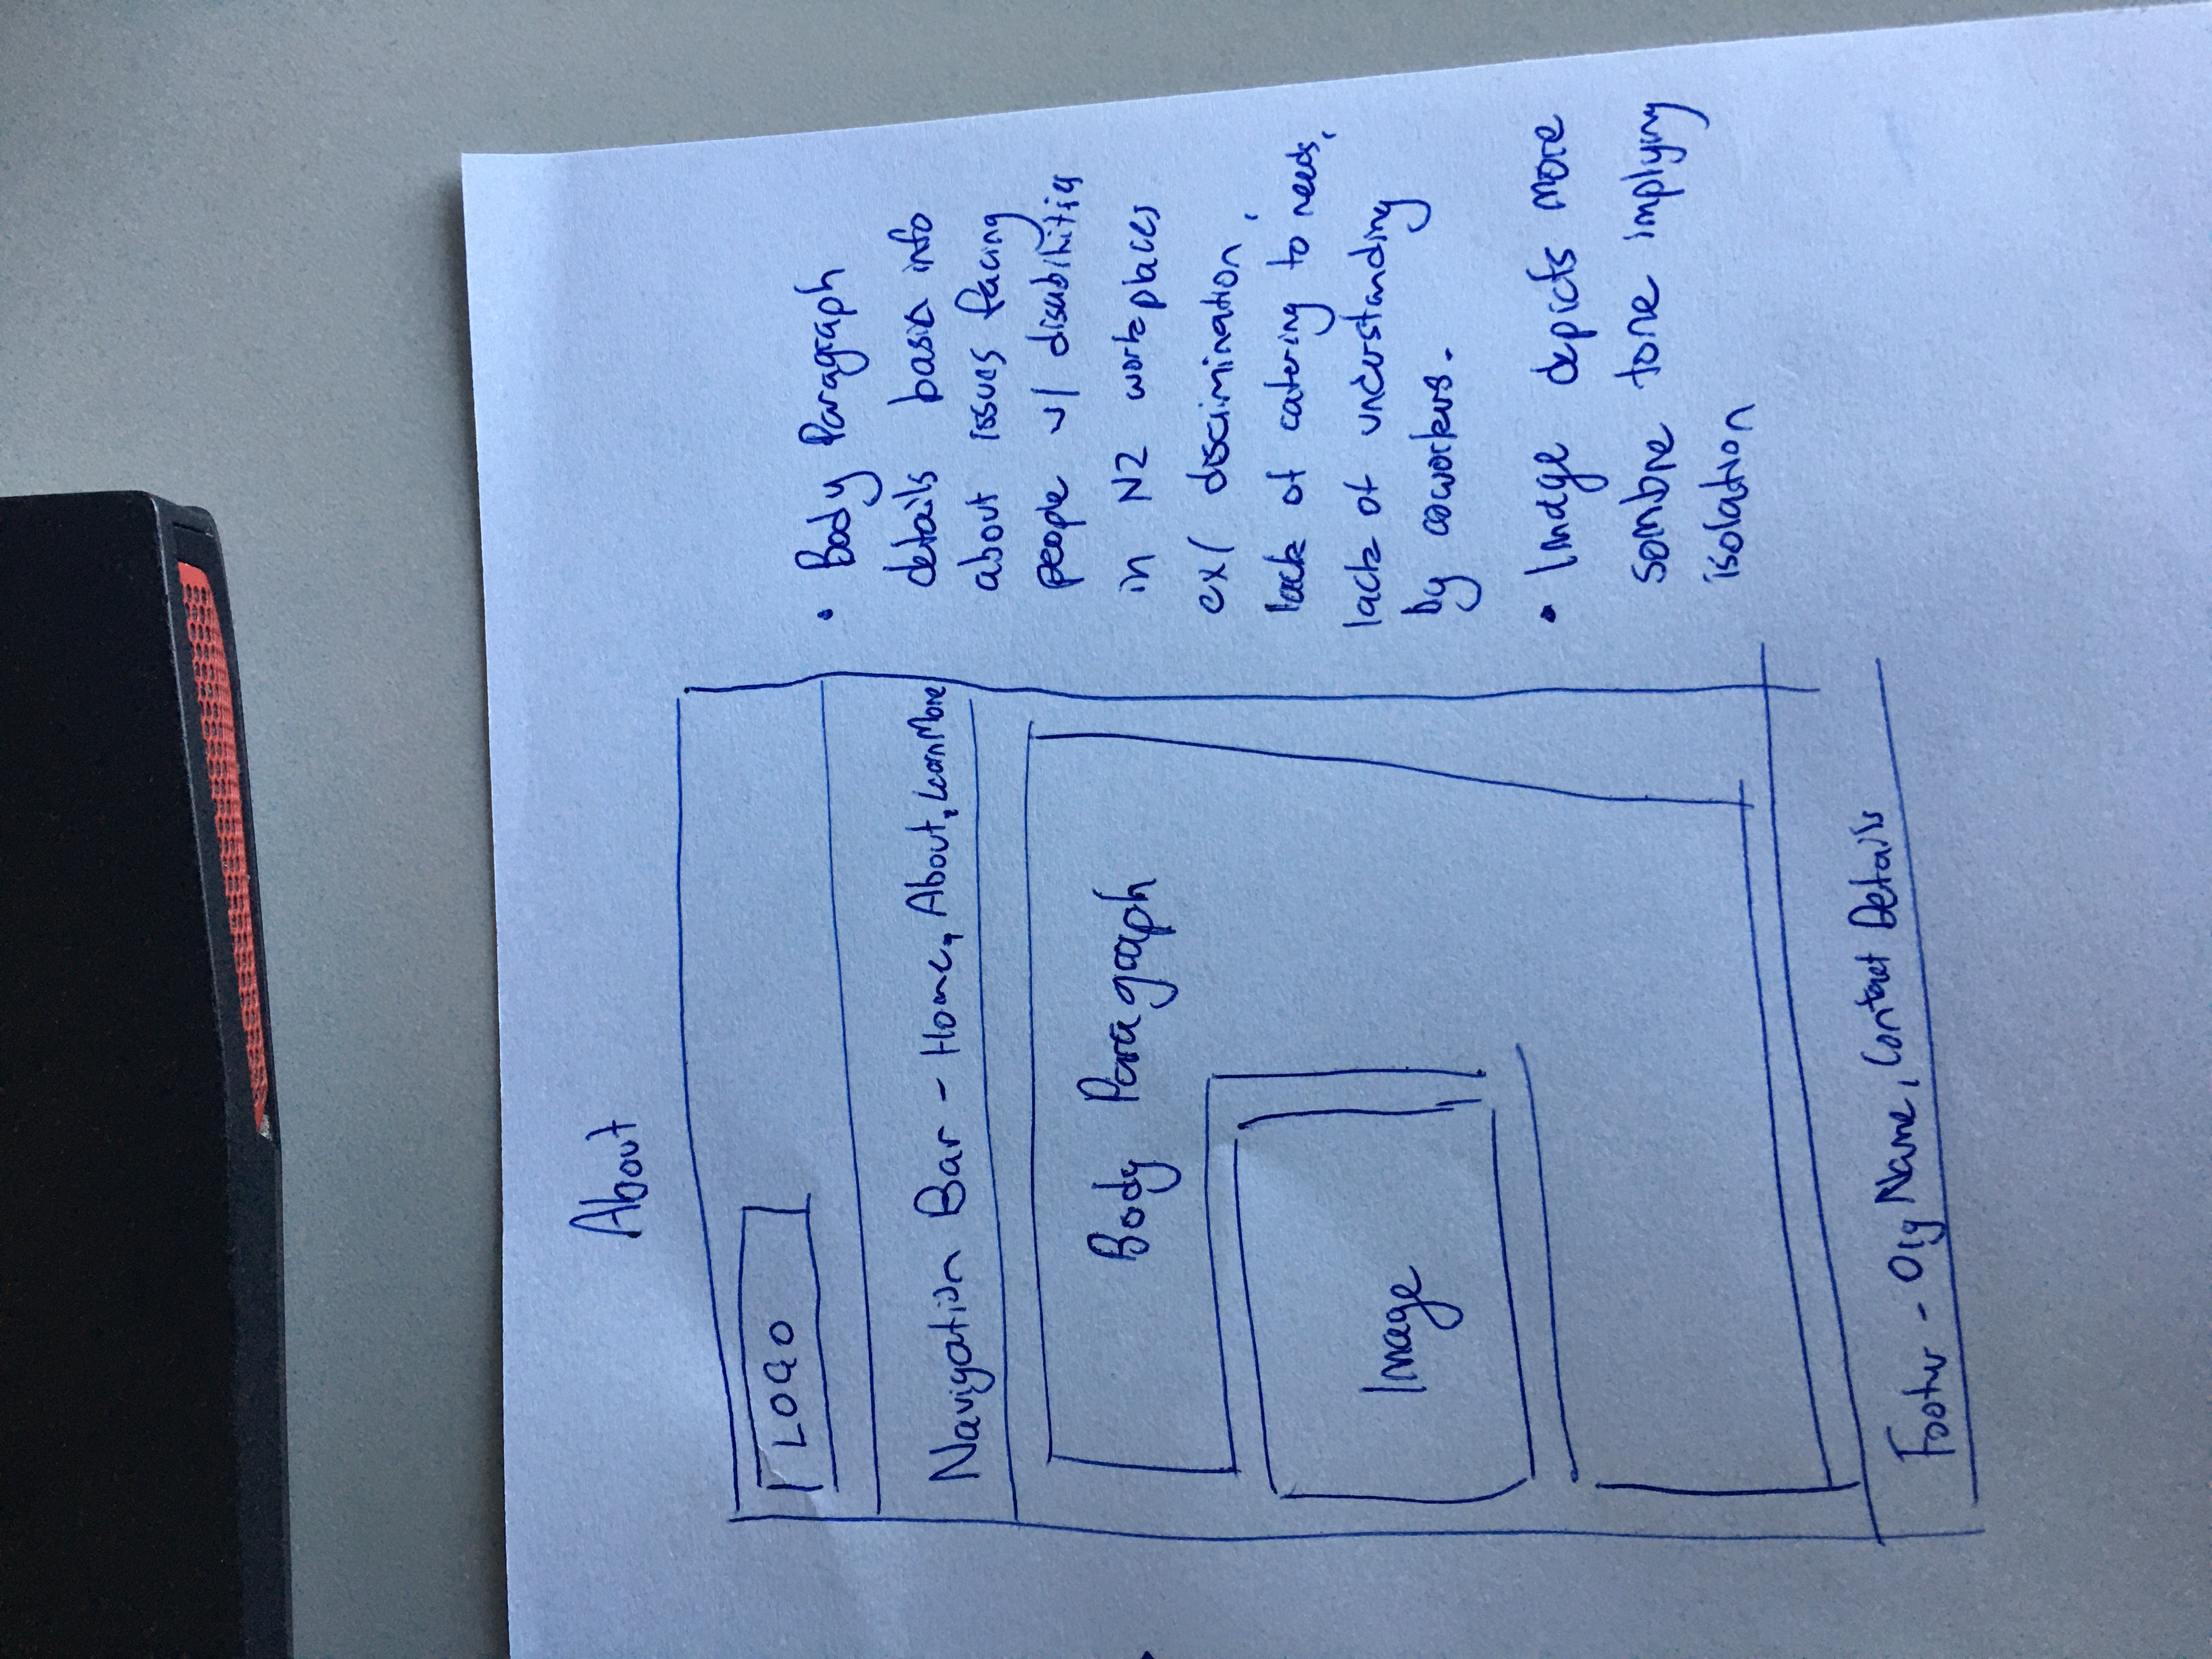 About
LOGO
Navigation Bar - Home, About, Learn More
Body Paragraph
Image
Footer - Org Name, Contact Details
• Body Paragraph
details basic info
about issues facing
people w/ disabilities
in NZ workplaces
ex/ discrimination,
lack of catering to needs,
lack of understanding
by coworkers.
• Image depicts more
sombre tone implying
isolation